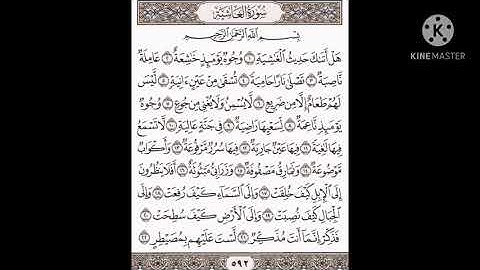 سُورَةُ الغَاشِيَةِ
بِسْمِ اللَّهِ الرَّحْمَٰنِ الرَّحِيمِ
هَلْ أَتَىٰكَ حَدِيثُ الْغَٰشِيَةِ ١ وُجُوهٌ يَوْمَئِذٍ خَٰشِعَةٌ ٢ عَامِلَةٌ
نَّاصِبَةٌ ٣ تَصْلَىٰ نَارًا حَامِيَةً ٤ تُسْقَىٰ مِنْ عَيْنٍ ءَانِيَةٍ ٥ لَّيْسَ
لَهُمْ طَعَامٌ إِلَّا مِن ضَرِيعٍ ٦ لَّا يُسْمِنُ وَلَا يُغْنِي مِن جُوعٍ ٧ وُجُوهٌ
يَوْمَئِذٍ نَّاعِمَةٌ ٨ لِّسَعْيِهَا رَاضِيَةٌ ٩ فِي جَنَّةٍ عَالِيَةٍ ١٠ لَّا تَسْمَعُ
فِيهَا لَٰغِيَةً ١١ فِيهَا عَيْنٌ جَارِيَةٌ ١٢ فِيهَا سُرُرٌ مَّرْفُوعَةٌ ١٣ وَأَكْوَابٌ
مَّوْضُوعَةٌ ١٤ وَنَمَارِقُ مَصْفُوفَةٌ ١٥ وَزَرَابِيُّ مَبْثُوثَةٌ ١٦ أَفَلَا يَنظُرُونَ
إِلَى الْإِبِلِ كَيْفَ خُلِقَتْ ١٧ وَإِلَى السَّمَاءِ كَيْفَ رُفِعَتْ ١٨ وَإِلَى
الْجِبَالِ كَيْفَ نُصِبَتْ ١٩ وَإِلَى الْأَرْضِ كَيْفَ سُطِحَتْ ٢٠
فَذَكِّرْ إِنَّمَا أَنتَ مُذَكِّرٌ ٢١ لَّسْتَ عَلَيْهِم بِمُصَيْطِرٍ ٢٢
٥٩٢
KINEMASTER